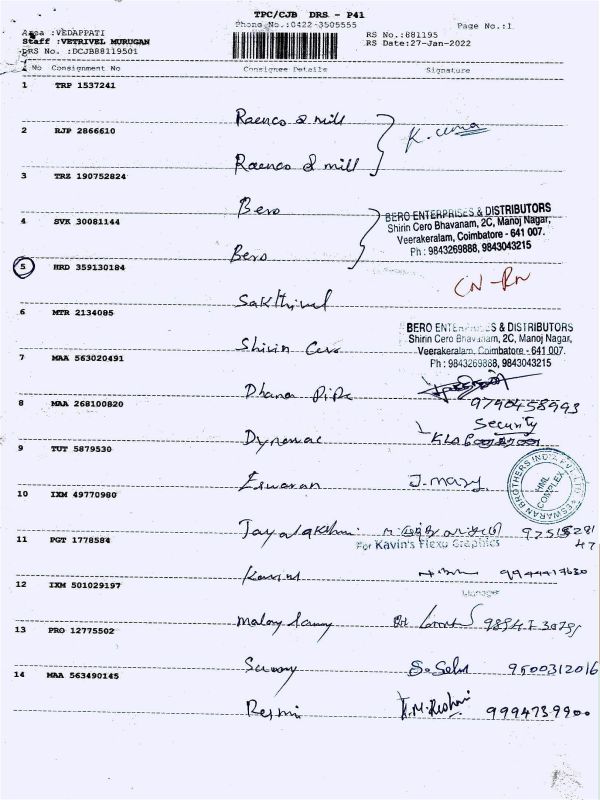 TPC/CJB DRS - P41
Phone No.:0422-3505555
Page No.:1
Area :VEDAPPATI
Staff :VETRIVEL MURUGAN
DRS No. :DCJB88119501
RS No.:881195
RS Date:27-Jan-2022
No Consignment No Consignee Details Signature
1 TRP 1537241
Raenco & mill
2 RJP 2866610
Raenco & mill
3 TRZ 190752824
Bero
BERO ENTERPRISES & DISTRIBUTORS
Shirin Cero Bhavanam, 2C, Manoj Nagar,
Veerakeralam, Coimbatore - 641 007.
Ph : 9843269888, 9843043215
4 SVK 30081144
Bero
5 HRD 359130184
CN-RN
Sakthivel
6 MTR 2134085
BERO ENTERPRISES & DISTRIBUTORS
Shirin Cero Bhavanam, 2C, Manoj Nagar,
Veerakeralam, Coimbatore - 641 007.
Ph : 9843269888, 9843043215
Shirin Cero
7 MAA 563020491
Dhana Pipe
9790458993
8 MAA 268100820
Security
Dynamac
9 TUT 5879530
ESWARAN BROTHERS INDIA PVT LTD
HML COMPLEX
Eswaran J. mary
10 IXM 49770980
Jayalakshmi
11 PGT 1778584
For Kavin's Flexo Graphics
Kavins 9944417630
12 IXM 501029197
Manager
13 PRO 12775502
Sammy S. Selvi 9500312016
14 MAA 563490145
Resmi K.M. Reshmi 9994739900